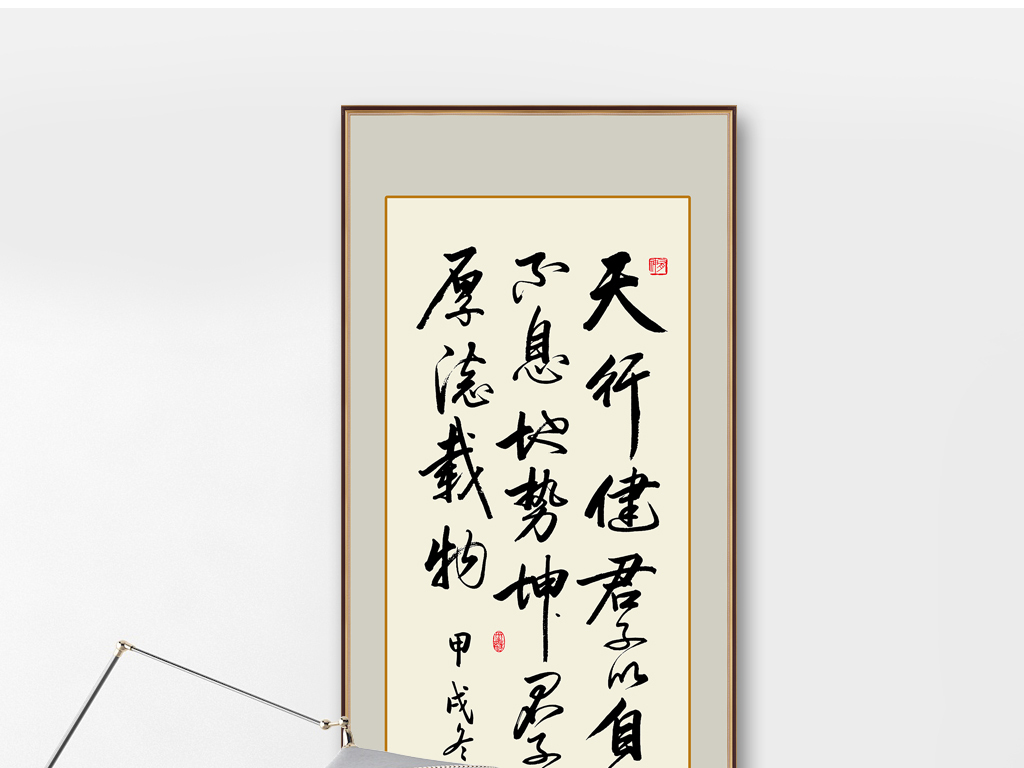 天行健君子以自
不息地势坤君子
厚德载物
甲戌冬